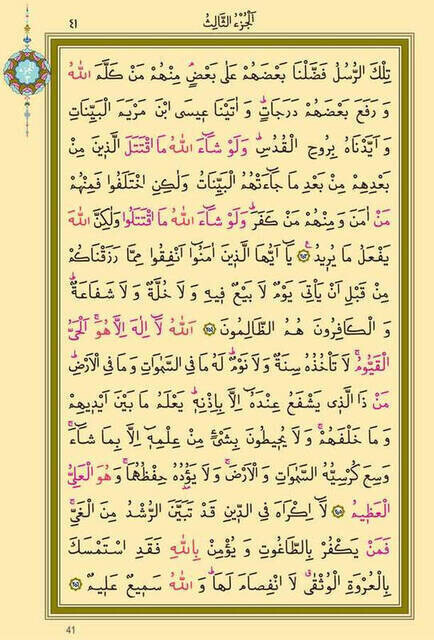 ٤١ اَلْجُزْءُ الثَّالِثُ
تِلْكَ الرُّسُلُ فَضَّلْنَا بَعْضَهُمْ عَلٰى بَعْضٍۢ مِنْهُمْ مَنْ كَلَّمَ اللّٰهُ
وَ رَفَعَ بَعْضَهُمْ دَرَجَاتٍۜ وَ اٰتَيْنَا عٖيسَى ابْنَ مَرْيَمَ الْبَيِّنَاتِ
وَ اَيَّدْنَاهُ بِرُوحِ الْقُدُسِۜ وَلَوْ شَٓاءَ اللّٰهُ مَا اقْتَتَلَ الَّذٖينَ مِنْ
بَعْدِهِمْ مِنْ بَعْدِ مَا جَٓاءَتْهُمُ الْبَيِّنَاتُ وَلٰكِنِ اخْتَلَفُوا فَمِنْهُمْ
مَنْ اٰمَنَ وَ مِنْهُمْ مَنْ كَفَرَۜ وَلَوْ شَٓاءَ اللّٰهُ مَا اقْتَتَلُوا وَلٰكِنَّ اللّٰهَ
يَفْعَلُ مَا يُرٖيدُ ﴿٢٥٣﴾ يَٓا اَيُّهَا الَّذٖينَ اٰمَنُٓوا اَنْفِقُوا مِمَّا رَزَقْنَاكُمْ
مِنْ قَبْلِ اَنْ يَاْتِىَ يَوْمٌ لَا بَيْعٌ فٖيهِ وَ لَا خُلَّةٌ وَ لَا شَفَاعَةٌۜ
وَ الْكَافِرُونَ هُمُ الظَّالِمُونَ ﴿٢٥٤﴾ اَللّٰهُ لَٓا اِلٰهَ اِلَّا هُوَۚ اَلْحَىُّ
الْقَيُّومُۚ لَا تَاْخُذُهُ سِنَةٌ وَ لَا نَوْمٌۜ لَهُ مَا فِى السَّمٰوَاتِ وَ مَا فِى الْاَرْضِۜ
مَنْ ذَا الَّذٖى يَشْفَعُ عِنْدَهُٓ اِلَّا بِاِذْنِهٖۜ يَعْلَمُ مَا بَيْنَ اَيْدٖيهِمْ
وَ مَا خَلْفَهُمْۚ وَ لَا يُحٖيطُونَ بِشَىْءٍ مِنْ عِلْمِهٖٓ اِلَّا بِمَا شَٓاءَۚ
وَسِعَ كُرْسِيُّهُ السَّمٰوَاتِ وَ الْاَرْضَۚ وَ لَا يَؤُدُهُ حِفْظُهُمَاۚ وَ هُوَ الْعَلِىُّ
الْعَظٖيمُ ﴿٢٥٥﴾ لَٓا اِكْرَاهَ فِى الدّٖينِ قَدْ تَبَيَّنَ الرُّشْدُ مِنَ الْغَىِّۚ
فَمَنْ يَكْفُرْ بِالطَّاغُوتِ وَ يُؤْمِنْ بِاللّٰهِ فَقَدِ اسْتَمْسَكَ
بِالْعُرْوَةِ الْوُثْقٰىۗ لَا انْفِصَامَ لَهَاۜ وَ اللّٰهُ سَمٖيعٌ عَلٖيمٌ ﴿٢٥٦﴾
41